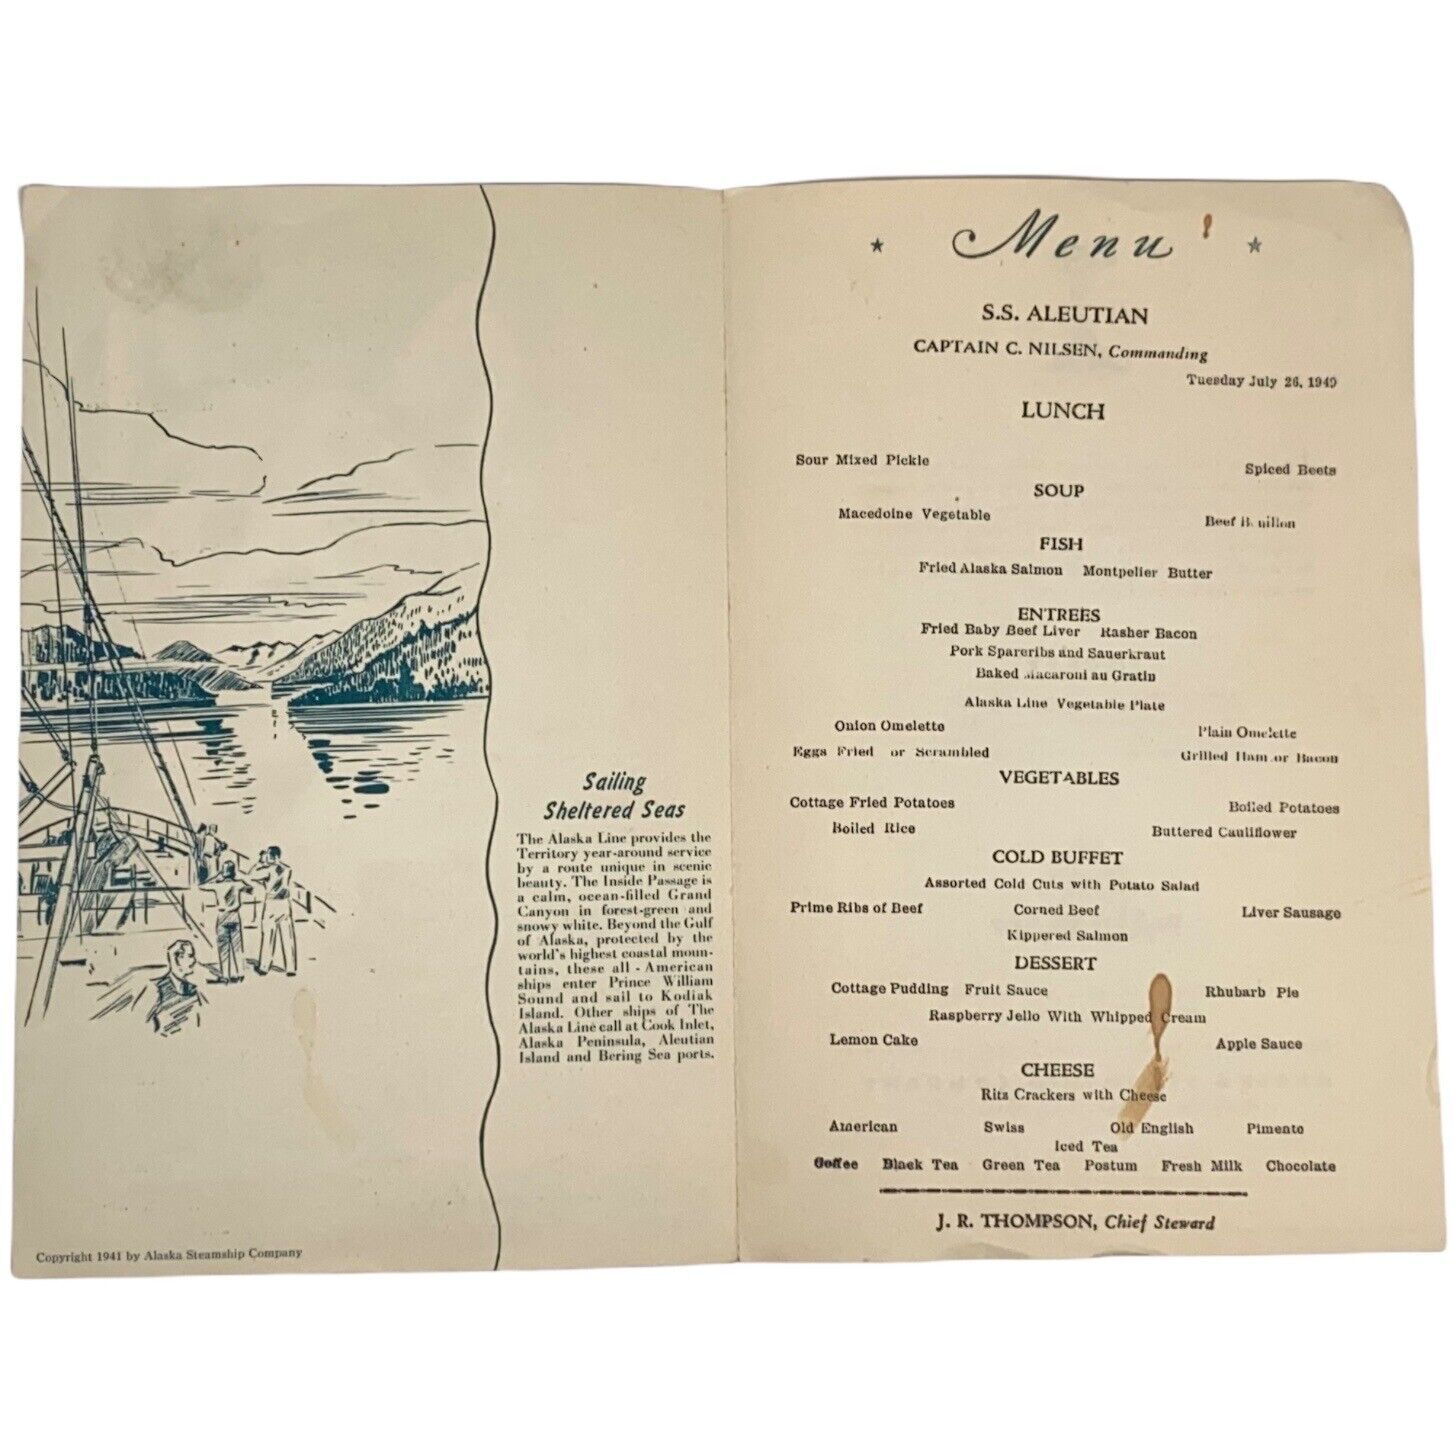 Sailing
Sheltered Seas
The Alaska Line provides the
Territory year-around service
by a route unique in scenic
beauty. The Inside Passage is
a calm, ocean-filled Grand
Canyon in forest-green and
snowy white. Beyond the Gulf
of Alaska, protected by the
world's highest coastal moun-
tains, these all - American
ships enter Prince William
Sound and sail to Kodiak
Island. Other ships of The
Alaska Line call at Cook Inlet,
Alaska Peninsula, Aleutian
Island and Bering Sea ports.
Copyright 1941 by Alaska Steamship Company
Menu
S.S. ALEUTIAN
CAPTAIN C. NILSEN, Commanding
Tuesday July 26, 1949
LUNCH
Sour Mixed Pickle Spiced Beets
SOUP
Macedoine Vegetable Beef Bouillon
FISH
Fried Alaska Salmon Montpelier Butter
ENTREES
Fried Baby Beef Liver Rasher Bacon
Pork Spareribs and Sauerkraut
Baked Macaroni au Gratin
Alaska Line Vegetable Plate
Onion Omelette Plain Omelette
Eggs Fried or Scrambled Grilled Ham or Bacon
VEGETABLES
Cottage Fried Potatoes Boiled Potatoes
Boiled Rice Buttered Cauliflower
COLD BUFFET
Assorted Cold Cuts with Potato Salad
Prime Ribs of Beef Corned Beef Liver Sausage
Kippered Salmon
DESSERT
Cottage Pudding Fruit Sauce Rhubarb Pie
Raspberry Jello With Whipped Cream
Lemon Cake Apple Sauce
CHEESE
Ritz Crackers with Cheese
American Swiss Old English Pimento
Iced Tea
Coffee Black Tea Green Tea Postum Fresh Milk Chocolate
J. R. THOMPSON, Chief Steward